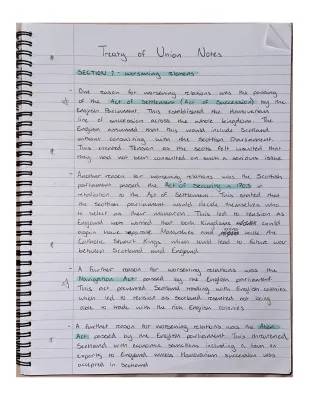 Treaty of Union Notes
SECTION 1 - worsening relations
- One reason for worsening relations was the passing
of the Act of Settlement (Act of Succession) by the
English Parliament. This established the Hanoverian
line of succession across the whole kingdom. The
English assumed that this would include Scotland
without consulting with the Scottish Parliament.
This created tension as the Scots felt insulted that
they had not been consulted on such a serious issue.
- Another reason for worsening relations was the Scottish
parliament passed the Act of Security in 1703 in
retaliation to the Act of Settlement. This stated that
the Scottish parliament would decide themselves who
to select as their monarch. This led to tension as
England were worried that both Kingdoms would
again have separate Monarchies and invite the
Catholic Stuart Kings which could lead to future war
between Scotland and England.
- A further reason for worsening relations was the
Navigation Act passed by the English parliament.
This act prevented Scotland trading with English colonies
which led to tension as Scotland resented not being
able to trade with the rich English colonies.
- A further reason for worsening relations was the Alien
Act passed by the English parliament. This threatened
Scotland with economic sanctions including a ban on
exports to England unless Hanoverian succession was
accepted in Scotland